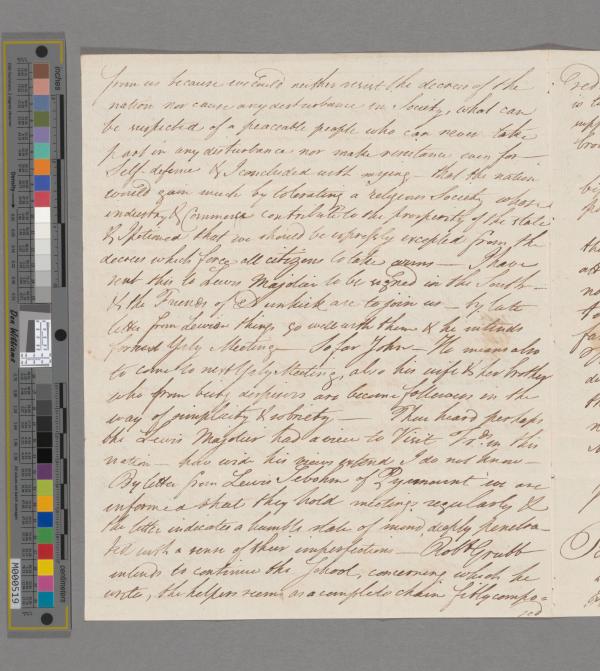 from us because we could neither resist the decrees of the
nation nor cause any disturbance in Society, what can
be suspected of a peaceable people who can never take
part in any disturbance nor make resistance even for
Self-defense & I concluded with saying that the nation
would gain much by tolerating a religious Society whose
industry & Commerce contribute to the prosperity of the state
& I petitioned that we should be expressly excepted from the
decrees which force all citizens to take arms — I have
sent this to Lewis Majolier to be signed in the South —
& the Friends of are to join us — by late
letter from Lewis things go well with them & he intends
for next Yrly Meeting — So far John — He means also
to come to next Yrly Meeting, also his wife & her brother
who from being despisers are become followers in the
way of simplicity & sobriety — Thou heard perhaps
the Lewis Majolier had a view to Visit Frds. in this
nation — how wid his views extend I do not know —
By letter from Lewis Sebohm of Pyrmount we are
informed that they hold meetings regularly &
the letter indicates a humble state of mind deeply penetra
ted with a sense of their imperfections — Robt Grubb
intends to continue the School, concerning which he
writes, the helpers seem as a complete chain fitly compo=
sed
Fred
is t
supp
brou
by
the
att
no
fa
of
th
inches
centimeters
Density
Don Williams
M000519